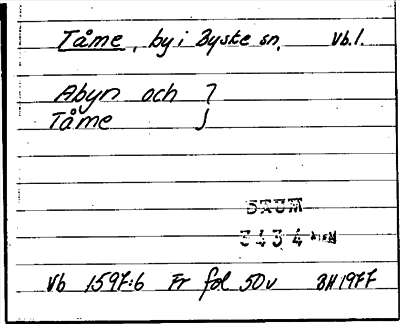 Tåme, by i Byske sn. Vb.l.
Abyn och }
Tåme
5XUM
3434
Vb 1597:6 Fr fol 50v BH 1977